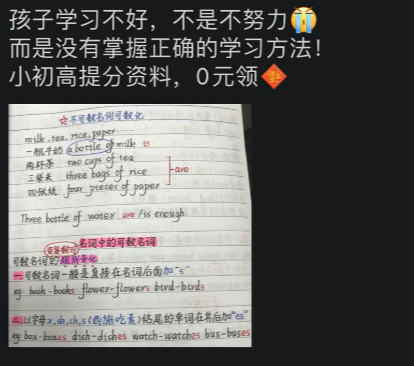 孩子学习不好，不是不努力😭
而是没有掌握正确的学习方法！
小初高提分资料，0元领🧧
☆不可数名词可数化
milk,tea,rice,paper······
一瓶牛奶 a bottle of milk is
两杯茶 two cups of tea
三袋米 three bags of rice
四张纸 four pieces of paper
-are
Three bottle of water are/is enough.
名词中的可数名词
可数名词的规则变化
一.可数名词一般是直接在名词后面加"s"
eg: book-books flower-flowers bird-birds
二.以字母x,sh,ch,s(西施吃素)结尾的单词在其后加"es"
eg: box-boxes dish-dishes watch-watches bus-buses